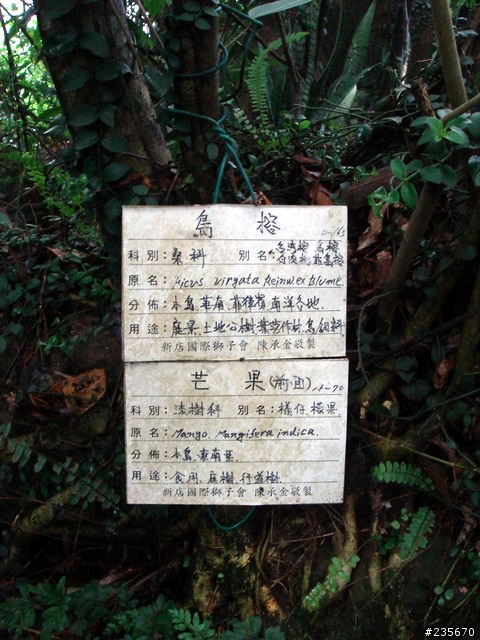 島榕 0-163
科別：桑科 別名：台湾榕 鳥榕
白肉榕 菲島榕
原名：Ficus virgata Reinwex blume
分佈：本島,華南,菲律賓,南洋各地.
用途：庭景.土地公樹,葉空作材,鳥飼料.
新店國際獅子會 陳承金敬製
芒果(前面) 12-70
科別：漆樹科 別名：樣仔,檬果.
原名：Mango. Mangifera indica.
分佈：本島,東南亚.
用途：食用.庭樹.行道樹.
新店國際獅子會 陳承金敬製
#235670